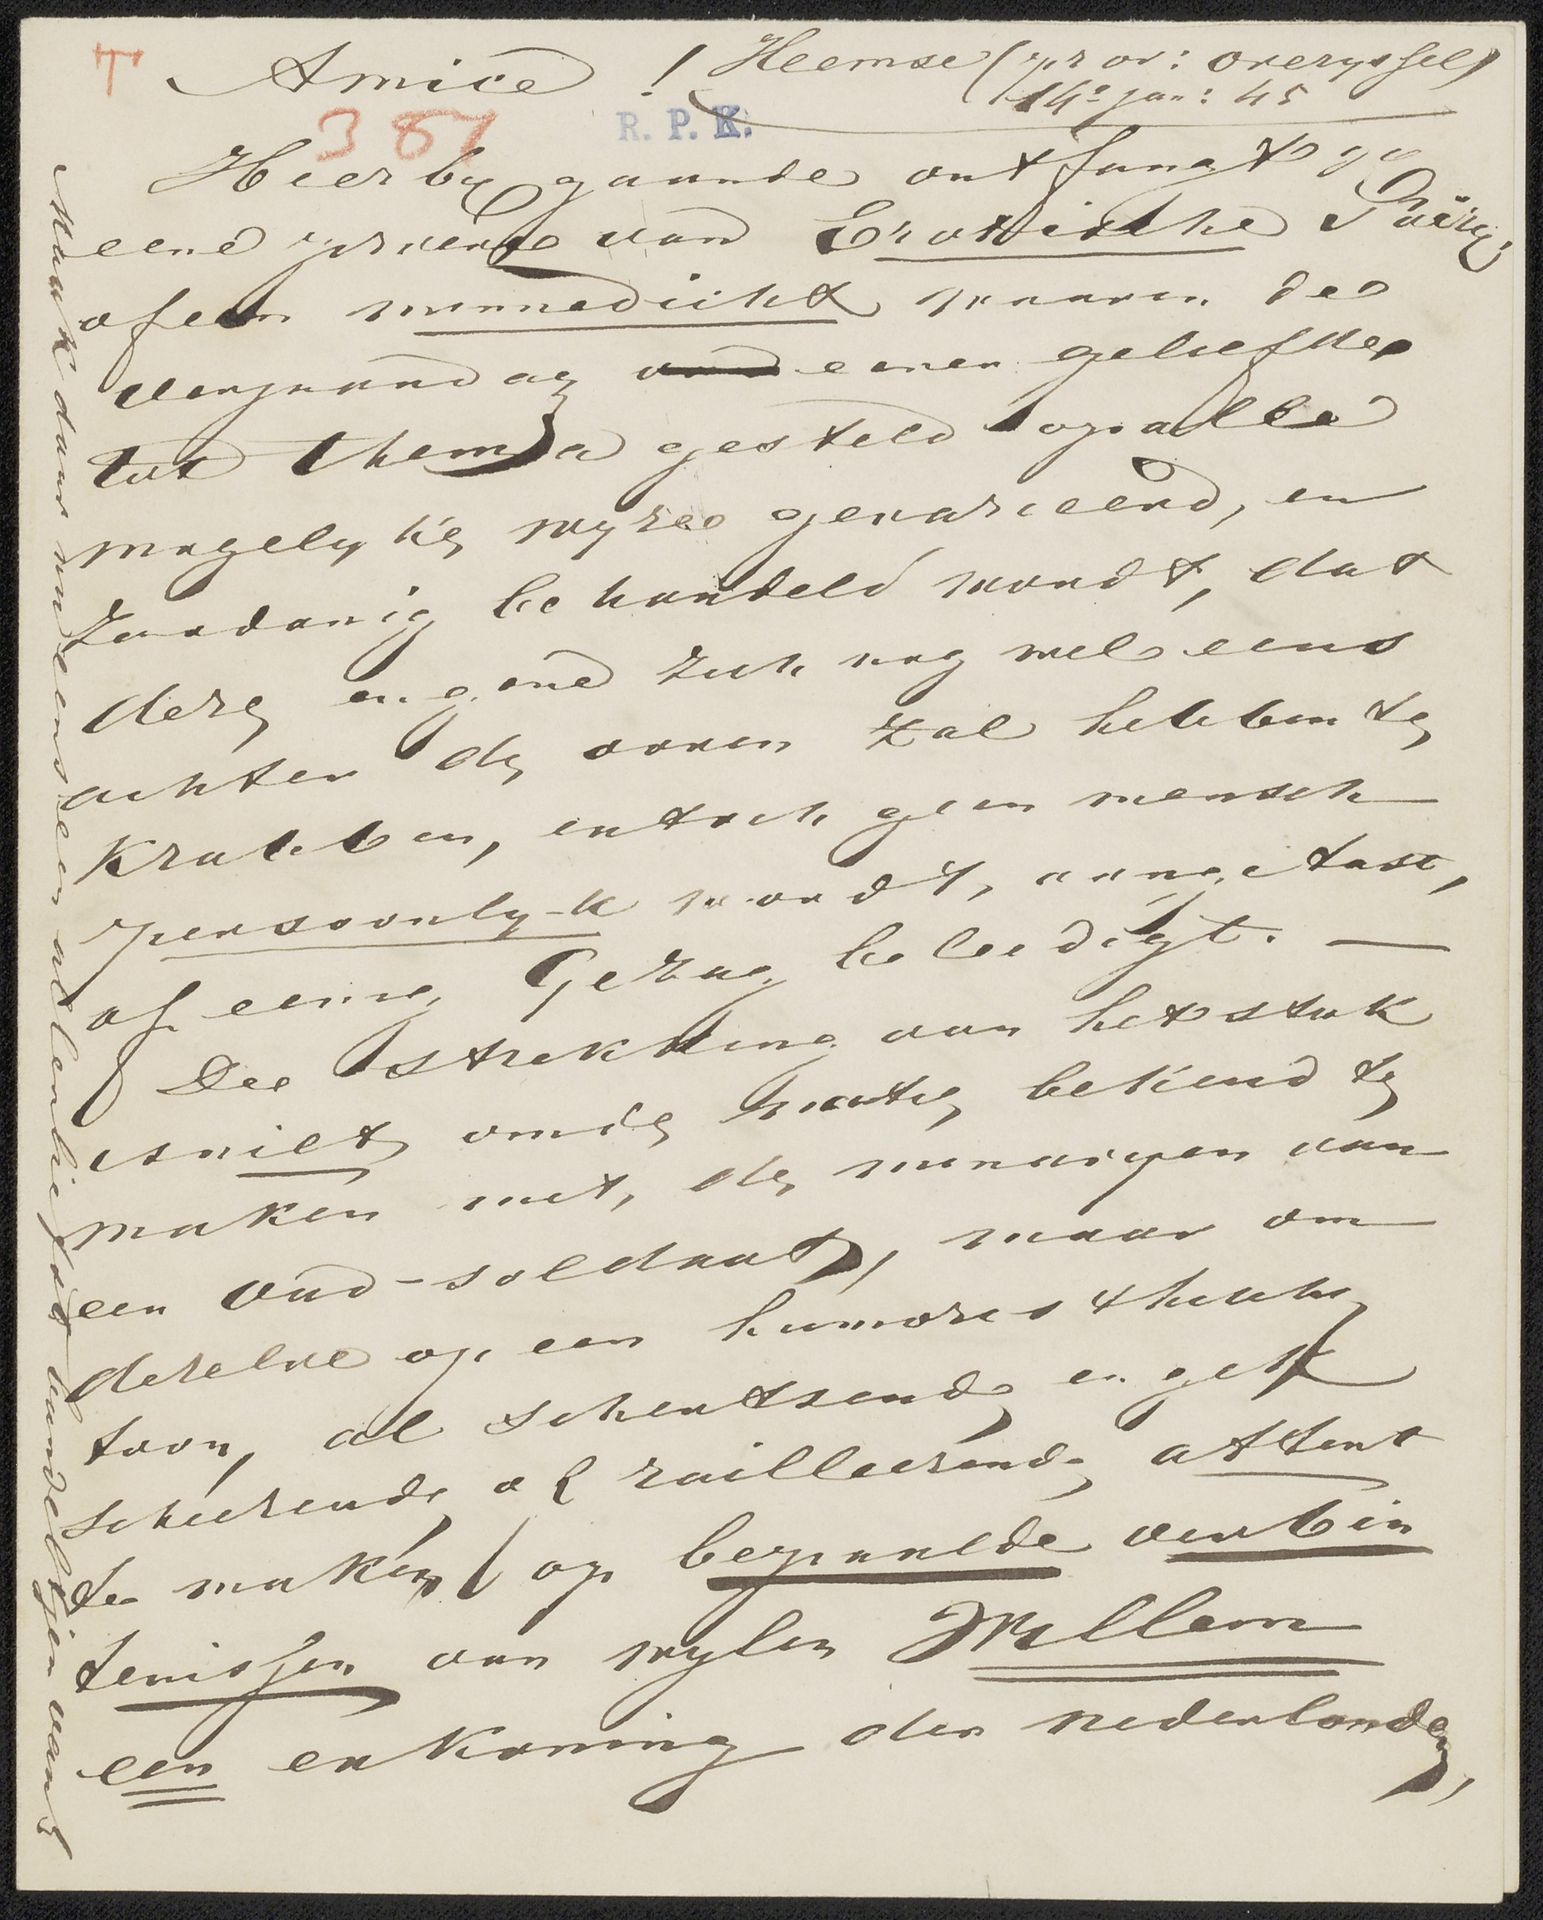 T
Amice! Heemse (prov: overyssel)
14e jan: 45
387
R. P. K.
Hierby gaande ontfangt gy
eene proeve van Erottische Poëzy,
of een minnedicht waarin de
verjaardag eener geliefde
tot thema gesteld op alle
mogelyke wyze gevarieerd, en
zoodanig behandeld wordt, dat
deze en gene zich nog wel eens
achter de ooren zal hebben te
krabben, en toch geen mensch
persoonlyk wordt aangetast,
of eenig Gezag beleedigt. —
De strekking van het stuk
is niet om de natie bekend te
maken met de minaryen van
een oud-soldaat, maar om
dezelve op een humoristische
toon, al schertsende en gek
scheerende of railleerende attent
te maken op bepaalde verbin
tenissen van wylen Willem
een en koning der nederlanden,
Maak daar nu eens een allerliefst handeltjen van